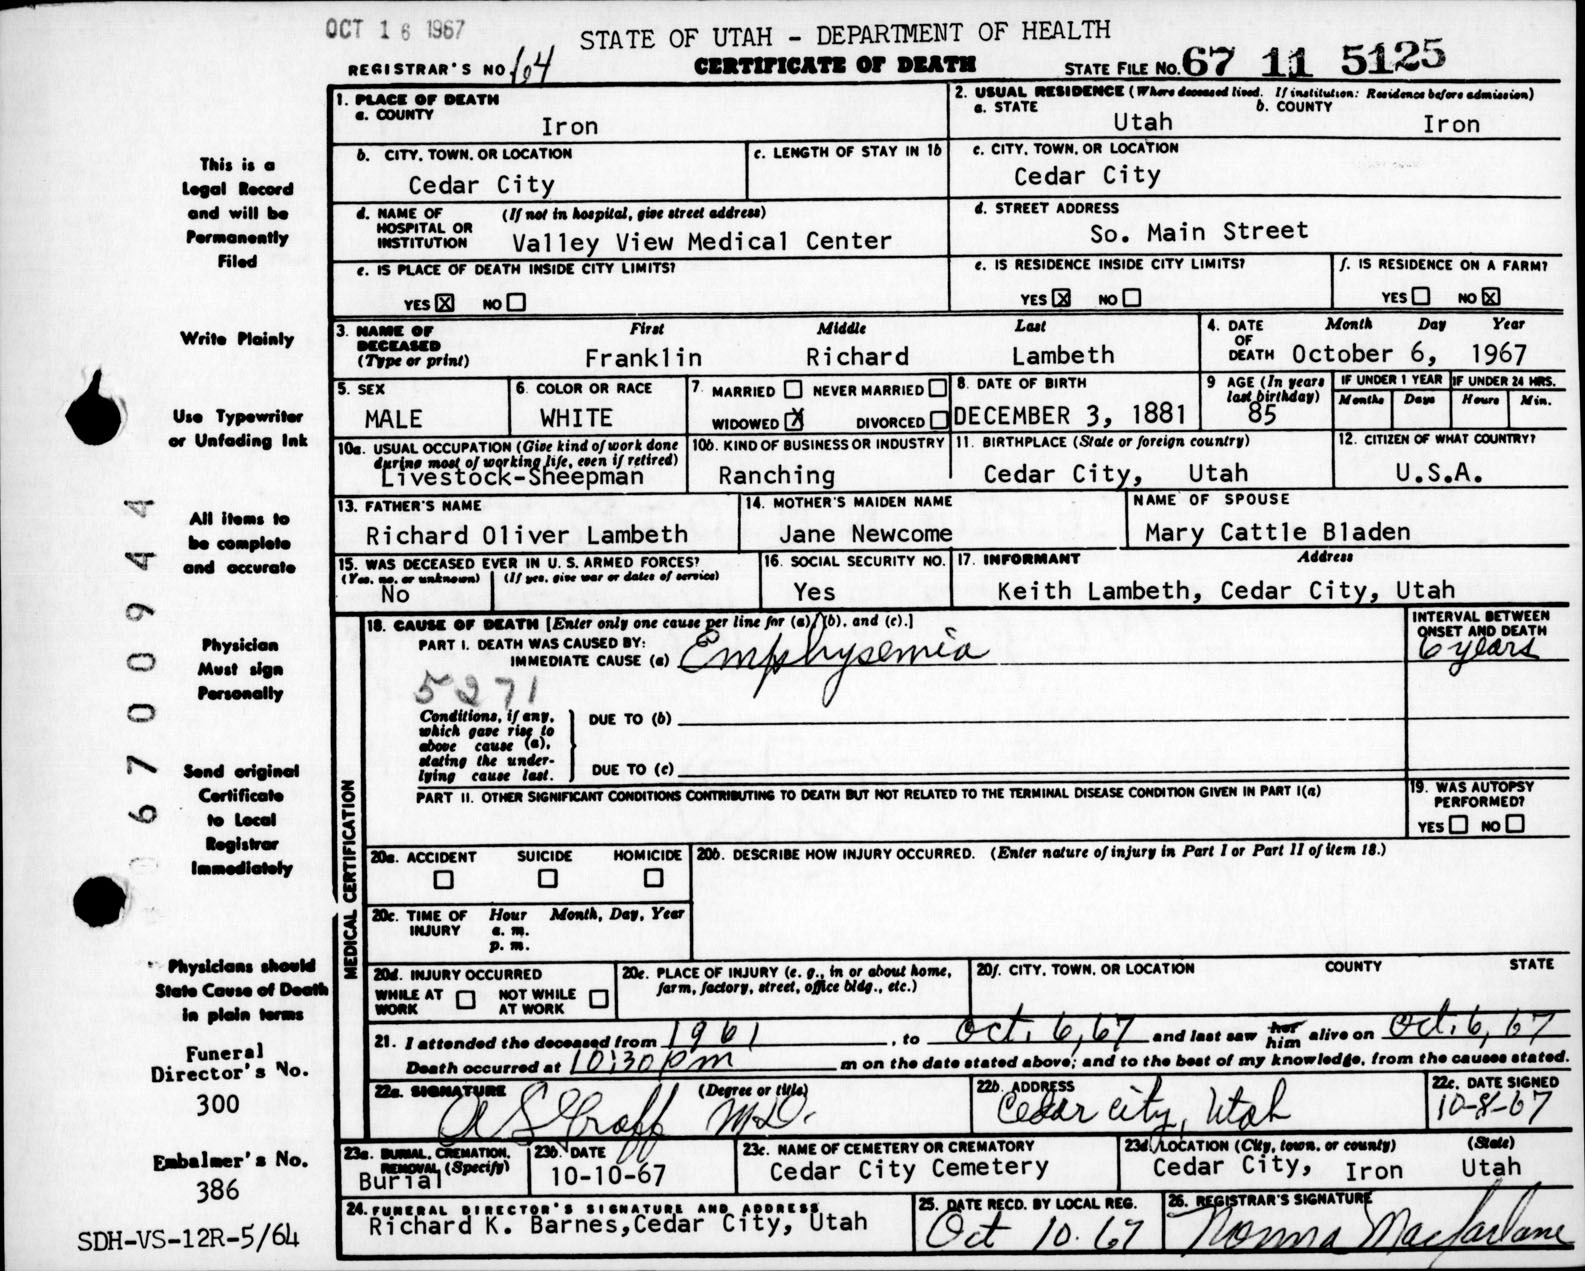 OCT 16 1967
STATE OF UTAH - DEPARTMENT OF HEALTH
REGISTRAR'S NO. 164 CERTIFICATE OF DEATH STATE FILE NO. 67 11 5125
This is a
Legal Record
and will be
Permanently
Filed
Write Plainly
Use Typewriter
or Unfading Ink
All items to
be complete
and accurate
Physician
Must sign
Personally
Send original
Certificate
to Local
Registrar
Immediately
Physicians should
State Cause of Death
in plain terms
Funeral
Director's No.
300
Embalmer's No.
386
SDH-VS-12R-5/64
06700944
1. PLACE OF DEATH
a. COUNTY
Iron
2. USUAL RESIDENCE (Where deceased lived. If institution: Residence before admission)
a. STATE b. COUNTY
Utah Iron
b. CITY, TOWN, OR LOCATION
Cedar City
c. LENGTH OF STAY IN 1b
c. CITY, TOWN, OR LOCATION
Cedar City
d. NAME OF (If not in hospital, give street address)
HOSPITAL OR
INSTITUTION Valley View Medical Center
d. STREET ADDRESS
So. Main Street
e. IS PLACE OF DEATH INSIDE CITY LIMITS?
YES X NO
e. IS RESIDENCE INSIDE CITY LIMITS?
YES X NO
f. IS RESIDENCE ON A FARM?
YES NO X
3. NAME OF First Middle Last
DECEASED
(Type or print) Franklin Richard Lambeth
4. DATE Month Day Year
OF
DEATH October 6, 1967
5. SEX
MALE
6. COLOR OR RACE
WHITE
7. MARRIED NEVER MARRIED
WIDOWED X DIVORCED
8. DATE OF BIRTH
DECEMBER 3, 1881
9 AGE (In years
last birthday)
85
IF UNDER 1 YEAR
Months Days
IF UNDER 24 HRS.
Hours Min.
10a. USUAL OCCUPATION (Give kind of work done
during most of working life, even if retired)
Livestock-Sheepman
10b. KIND OF BUSINESS OR INDUSTRY
Ranching
11. BIRTHPLACE (State or foreign country)
Cedar City, Utah
12. CITIZEN OF WHAT COUNTRY?
U.S.A.
13. FATHER'S NAME
Richard Oliver Lambeth
14. MOTHER'S MAIDEN NAME
Jane Newcome
NAME OF SPOUSE
Mary Cattle Bladen
15. WAS DECEASED EVER IN U. S. ARMED FORCES?
(Yes, no, or unknown) (If yes, give war or dates of service)
No
16. SOCIAL SECURITY NO.
Yes
17. INFORMANT Address
Keith Lambeth, Cedar City, Utah
MEDICAL CERTIFICATION
18. CAUSE OF DEATH [Enter only one cause per line for (a), (b), and (c).]
PART I. DEATH WAS CAUSED BY:
IMMEDIATE CAUSE (a) Emphysemia
INTERVAL BETWEEN
ONSET AND DEATH
6 years
5271
Conditions, if any,
which gave rise to
above cause (a),
stating the under-
lying cause last.
DUE TO (b)
DUE TO (c)
PART II. OTHER SIGNIFICANT CONDITIONS CONTRIBUTING TO DEATH BUT NOT RELATED TO THE TERMINAL DISEASE CONDITION GIVEN IN PART I(a)
19. WAS AUTOPSY
PERFORMED?
YES NO
20a. ACCIDENT SUICIDE HOMICIDE
20b. DESCRIBE HOW INJURY OCCURRED. (Enter nature of injury in Part I or Part II of item 18.)
20c. TIME OF Hour Month, Day, Year
INJURY a. m.
p. m.
20d. INJURY OCCURRED
WHILE AT NOT WHILE
WORK AT WORK
20e. PLACE OF INJURY (e. g., in or about home,
farm, factory, street, office bldg., etc.)
20f. CITY, TOWN, OR LOCATION COUNTY STATE
21. I attended the deceased from 1961, to Oct. 6, 67 and last saw her him alive on Oct. 6, 67
Death occurred at 10:30 pm m on the date stated above; and to the best of my knowledge, from the causes stated.
22a. SIGNATURE (Degree or title)
A S Graff M.D.
22b. ADDRESS
Cedar City, Utah
22c. DATE SIGNED
10-8-67
23a. BURIAL, CREMATION,
REMOVAL (Specify)
Burial
23b. DATE
10-10-67
23c. NAME OF CEMETERY OR CREMATORY
Cedar City Cemetery
23d. LOCATION (City, town, or county) (State)
Cedar City, Iron Utah
24. FUNERAL DIRECTOR'S SIGNATURE AND ADDRESS
Richard K. Barnes, Cedar City, Utah
25. DATE RECD. BY LOCAL REG.
Oct 10. 67
26. REGISTRAR'S SIGNATURE
Norma Macfarlane